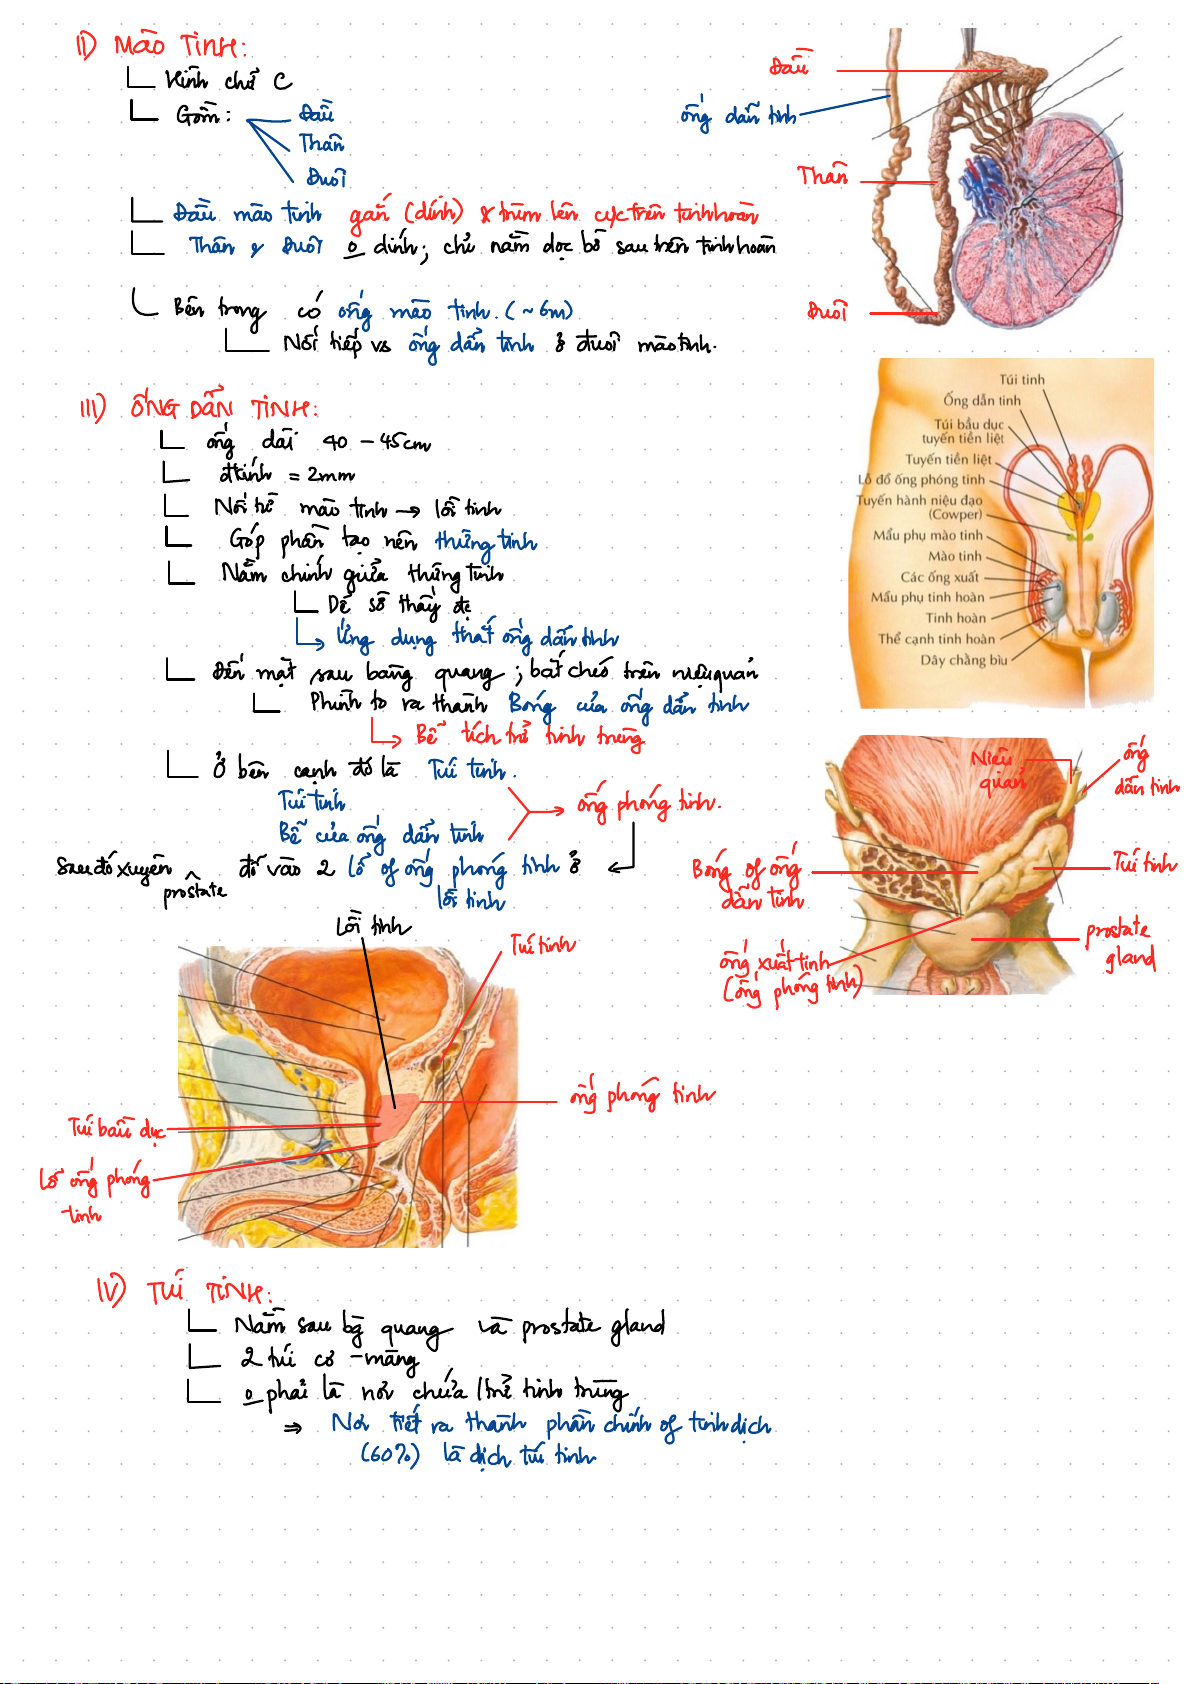 II) MÀO TINH:
Hình chữ C
Gồm: Đầu
Thân
Đuôi
Đầu mào tinh gắn (dính) & trùm lên cực trên tinh hoàn
Thân & Đuôi o dính; chỉ nằm dọc bờ sau trên tinh hoàn
Bên trong có ống mào tinh. (~6m)
Nối tiếp vs ống dẫn tinh ở đuôi mào tinh.
Đầu
ống dẫn tinh
Thân
Đuôi
III) ỐNG DẪN TINH:
ống dài 40 - 45cm
đkính = 2mm
Nối từ mào tinh → lồi tinh
Góp phần tạo nên thừng tinh
Nằm chính giữa thừng tinh
Dễ sờ thấy đc
Ứng dụng thắt ống dẫn tinh
Đến mặt sau bàng quang; bắt chéo trên niệu quản
Phình to ra thành Bóng của ống dẫn tinh
Bể tích trữ tinh trùng
Ở bên cạnh đó là Túi tinh.
Túi tinh
Bể của ống dẫn tinh
ống phóng tinh.
Sau đó xuyên prostate đổ vào 2 lỗ of ống phóng tinh ở
lồi tinh
Túi tinh
Ống dẫn tinh
Túi bầu dục
tuyến tiền liệt
Tuyến tiền liệt
Lỗ đổ ống phóng tinh
Tuyến hành niệu đạo
(Cowper)
Mẩu phụ mào tinh
Mào tinh
Các ống xuất
Mẩu phụ tinh hoàn
Tinh hoàn
Thể cạnh tinh hoàn
Dây chằng bìu
Niệu
quản
ống
dẫn tinh
Bóng of ống
dẫn tinh
Túi tinh
ống xuất tinh
(ống phóng tinh)
prostate
gland
Lồi tinh
Túi tinh
ống phóng tinh
Túi bầu dục
Lỗ ống phóng
tinh
IV) TÚI TINH:
Nằm sau bg quang và prostate gland
2 túi cơ - màng
o phải là nơi chứa / trữ tinh trùng
⇒ Nơi tiết ra thành phần chính of tinh dịch
(60%) là dịch túi tinh